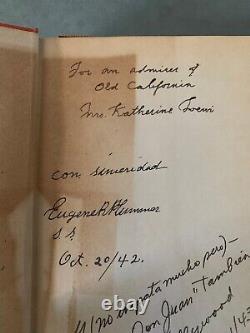 For an admirer of
Old California
Mrs. Katherine Loewi
con sinceridad
Eugene R. Plummer
S.S.
Oct. 20/42.
(no es pata mucho pero)-
"Don Juan" También